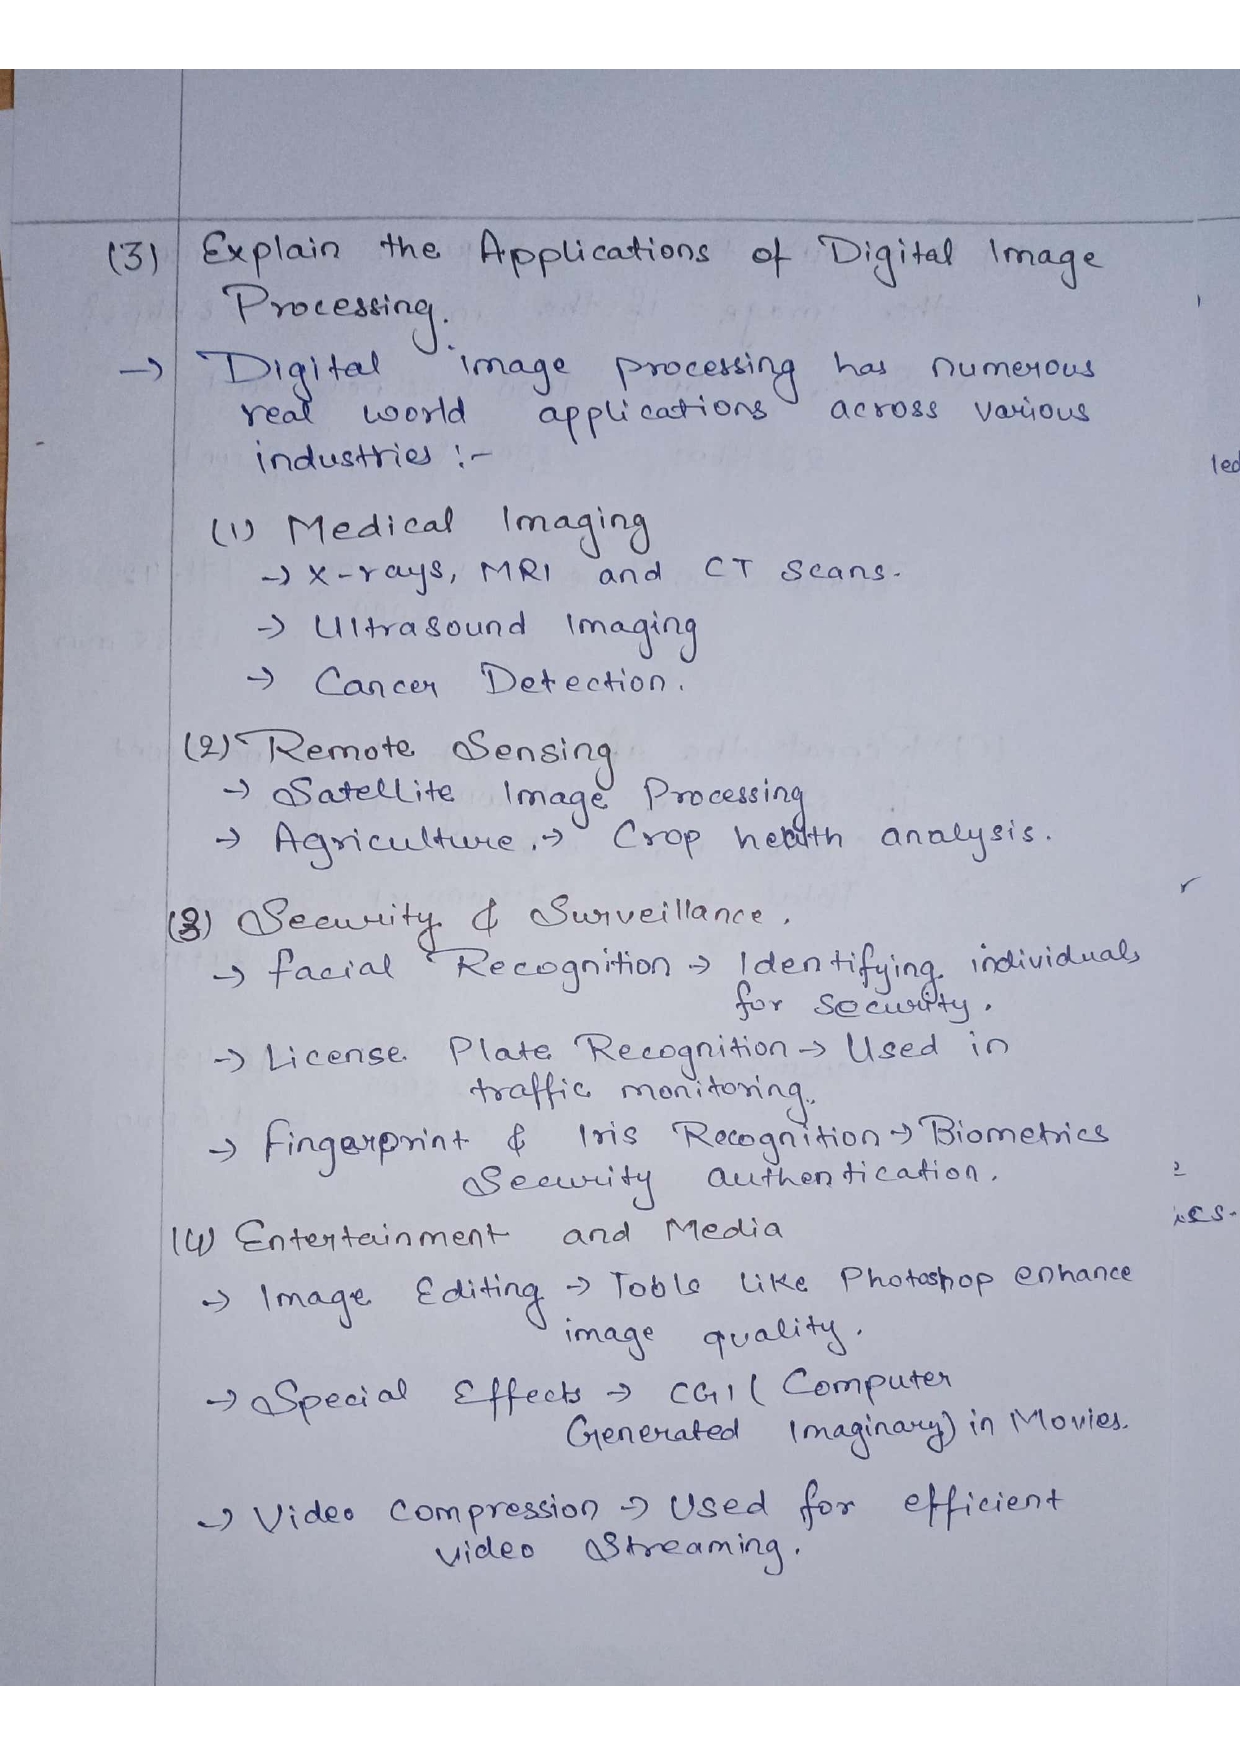 (3) Explain the Applications of Digital Image
Processing.
→ Digital image processing has numerous
real world applications across various
industries :-
(1) Medical Imaging
→ X-rays, MRI and CT Scans.
→ Ultrasound Imaging
→ Cancer Detection.
(2) Remote Sensing
→ Satellite Image Processing
→ Agriculture. → Crop health analysis.
(3) Security & Surveillance.
→ Facial Recognition → Identifying individuals
for security.
→ License Plate Recognition → Used in
traffic monitoring.
→ Fingerprint & Iris Recognition → Biometrics
Security authentication.
(4) Entertainment and Media
→ Image Editing → Tools like Photoshop enhance
image quality.
→ Special Effects → CGI (Computer
Generated Imaginary) in Movies.
→ Video Compression → Used for efficient
video Streaming.